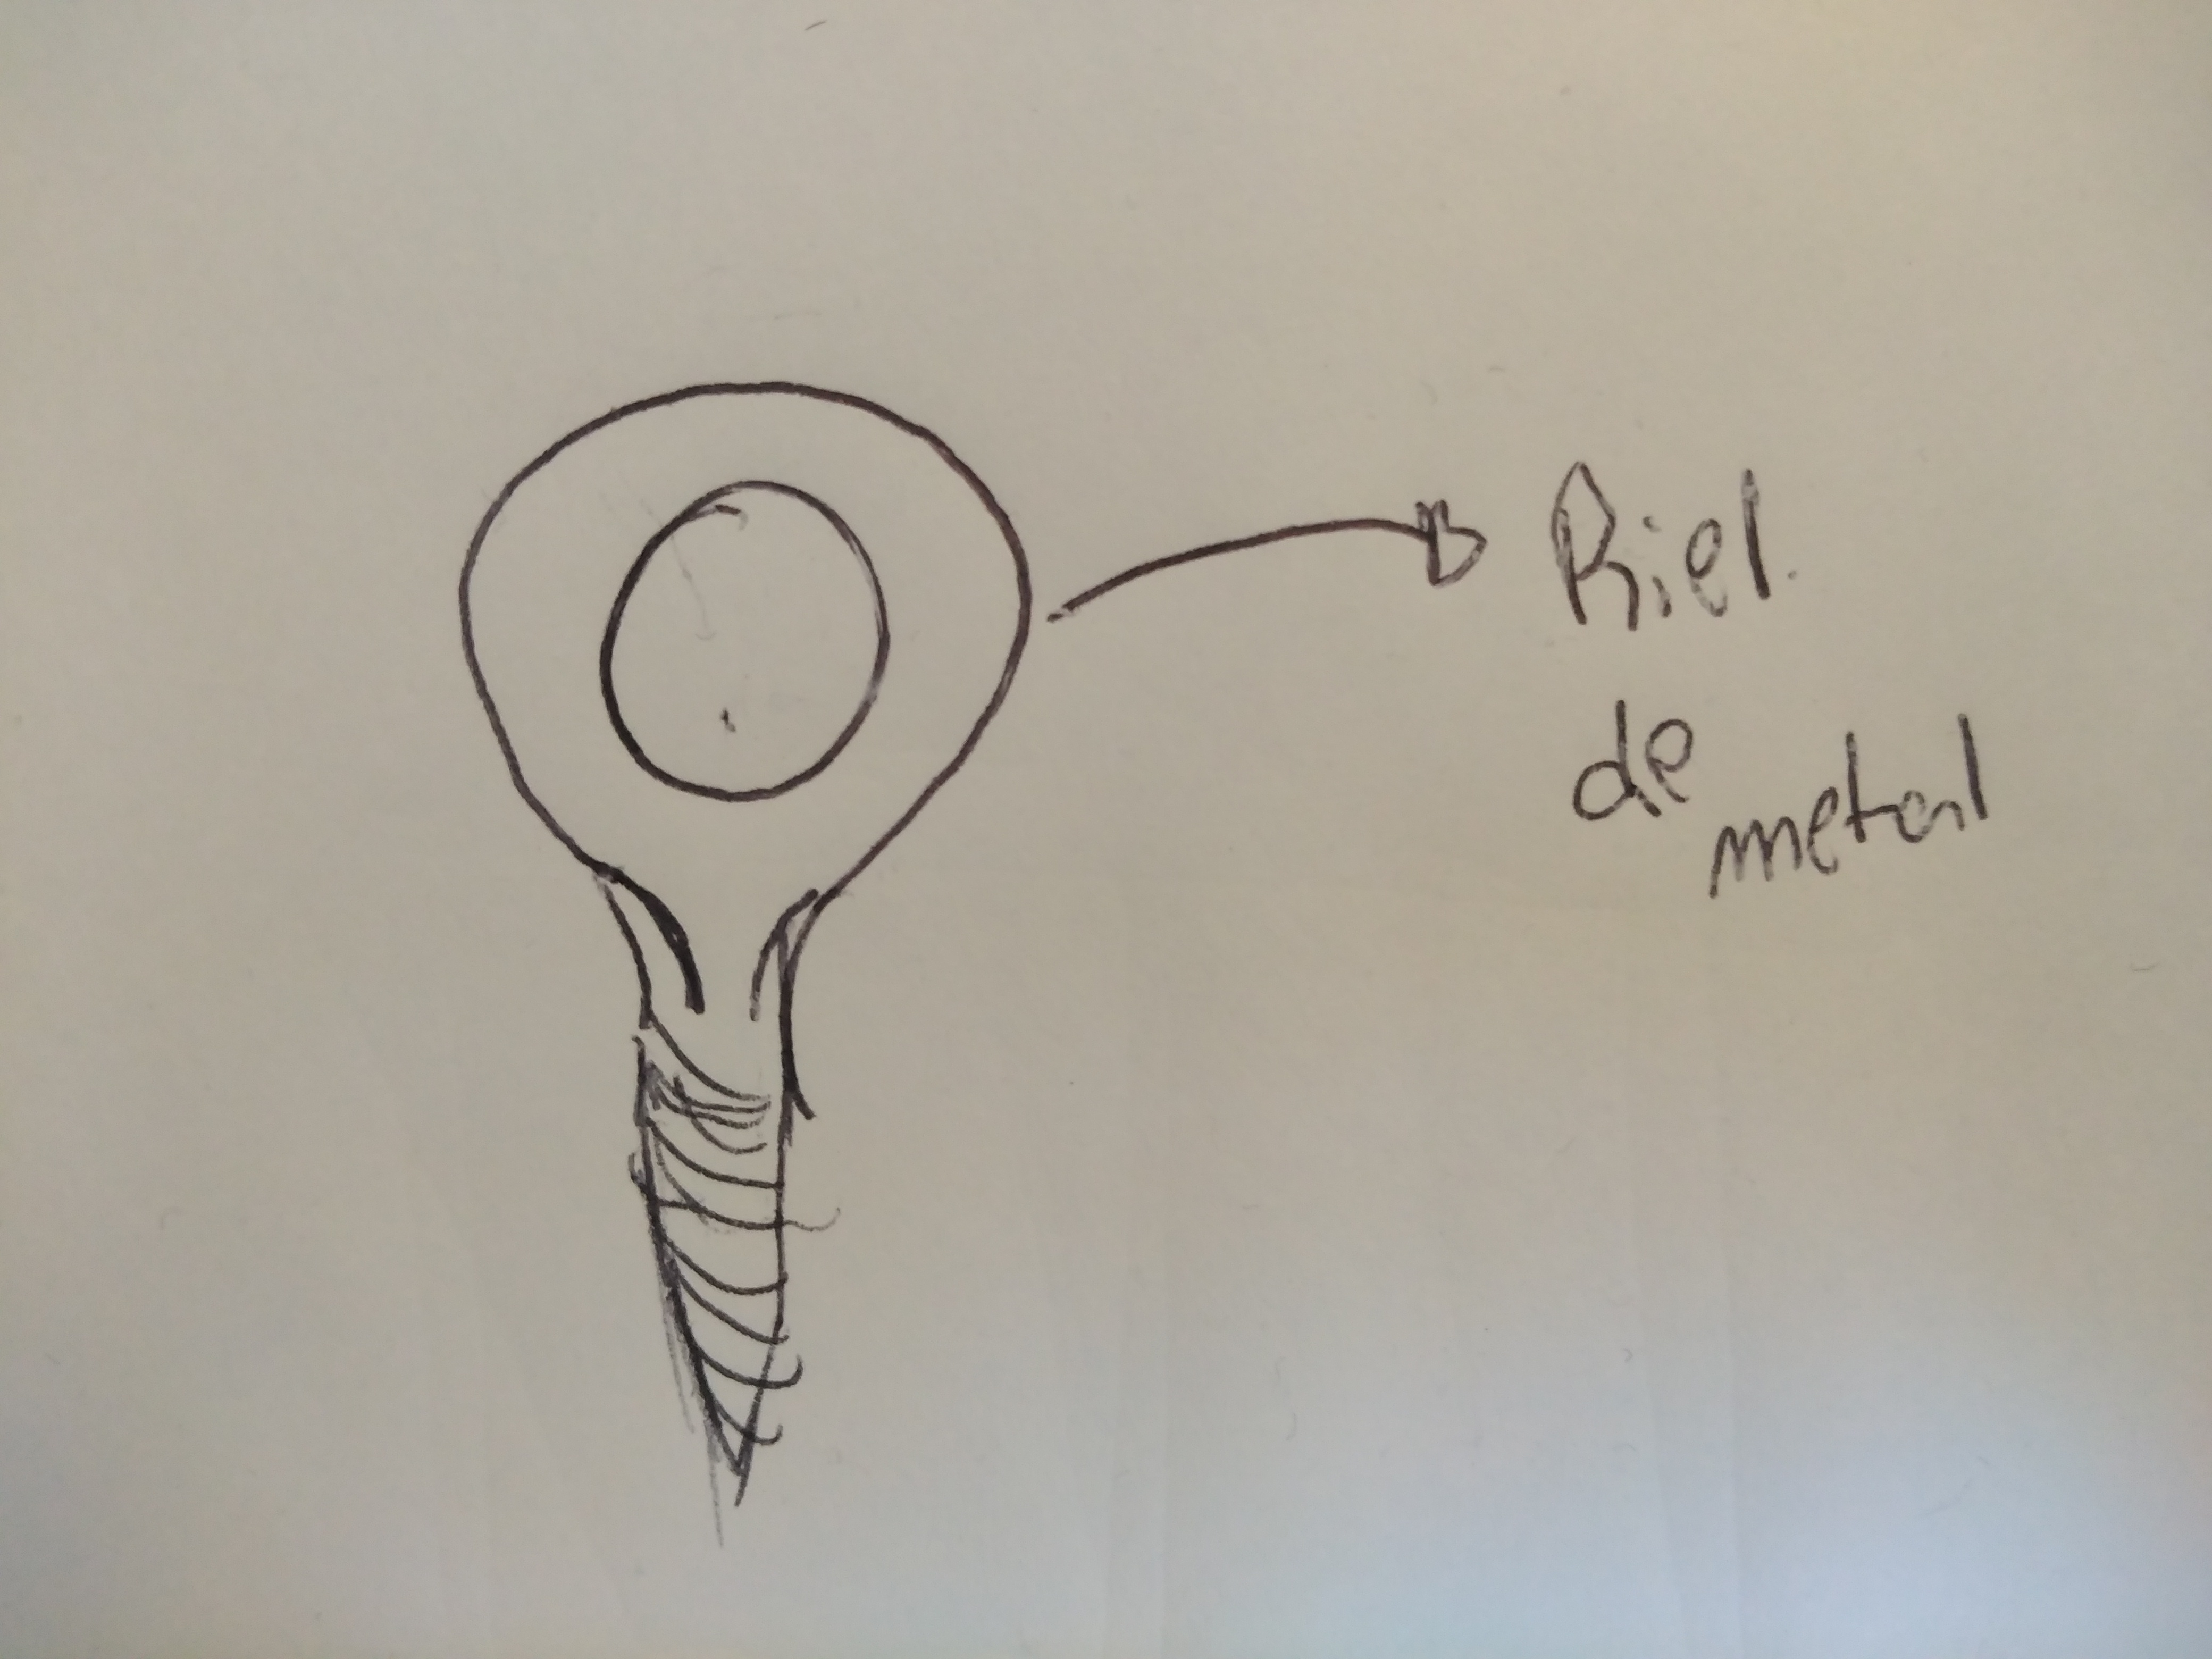 Riel
de
metal